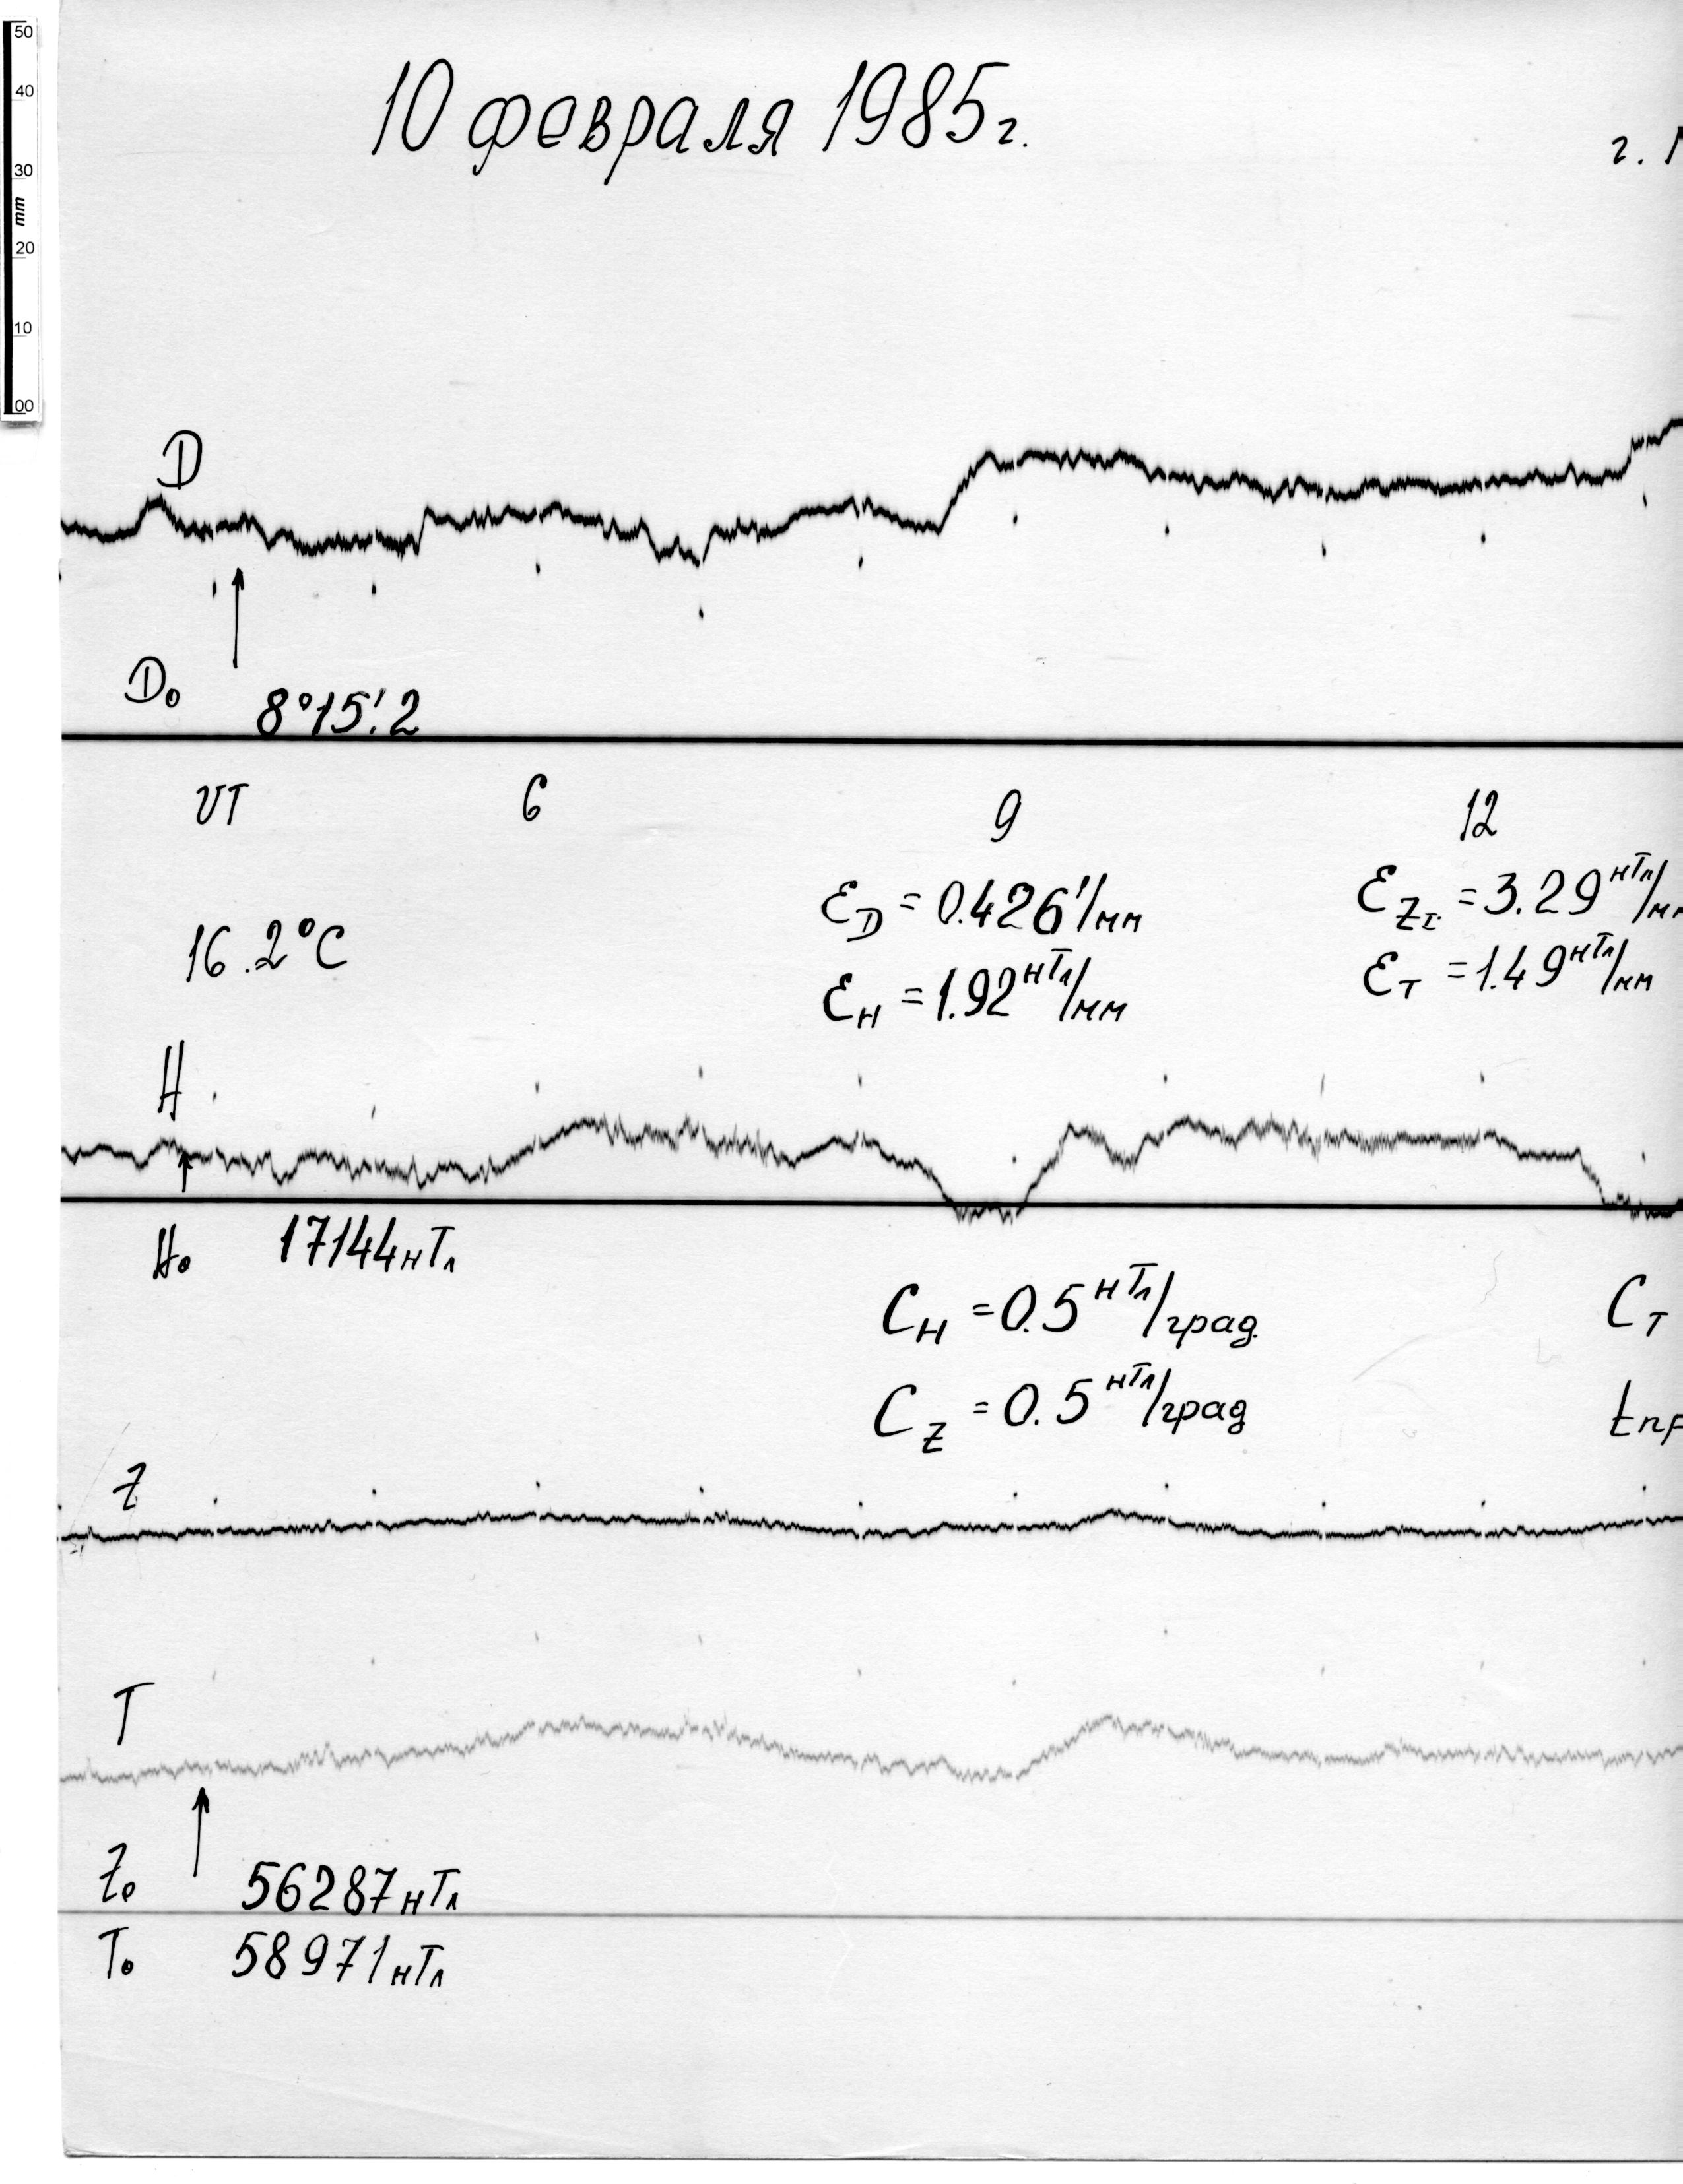 50
40
30
mm
20
10
00
10 февраля 1985г.
г.
D
D₀ 8°15!2
UT 6 9 12
16.2°C
ε_D = 0.426'/мм
ε_ZI = 3.29 нТл/
ε_H = 1.92 нТл/мм
ε_T = 1.49 нТл/мм
H
H₀ 17144 нТл
C_H = 0.5 нТл/град.
C_T
C_Z = 0.5 нТл/град
Z
T
Z₀ 56287 нТл
T₀ 58971 нТл